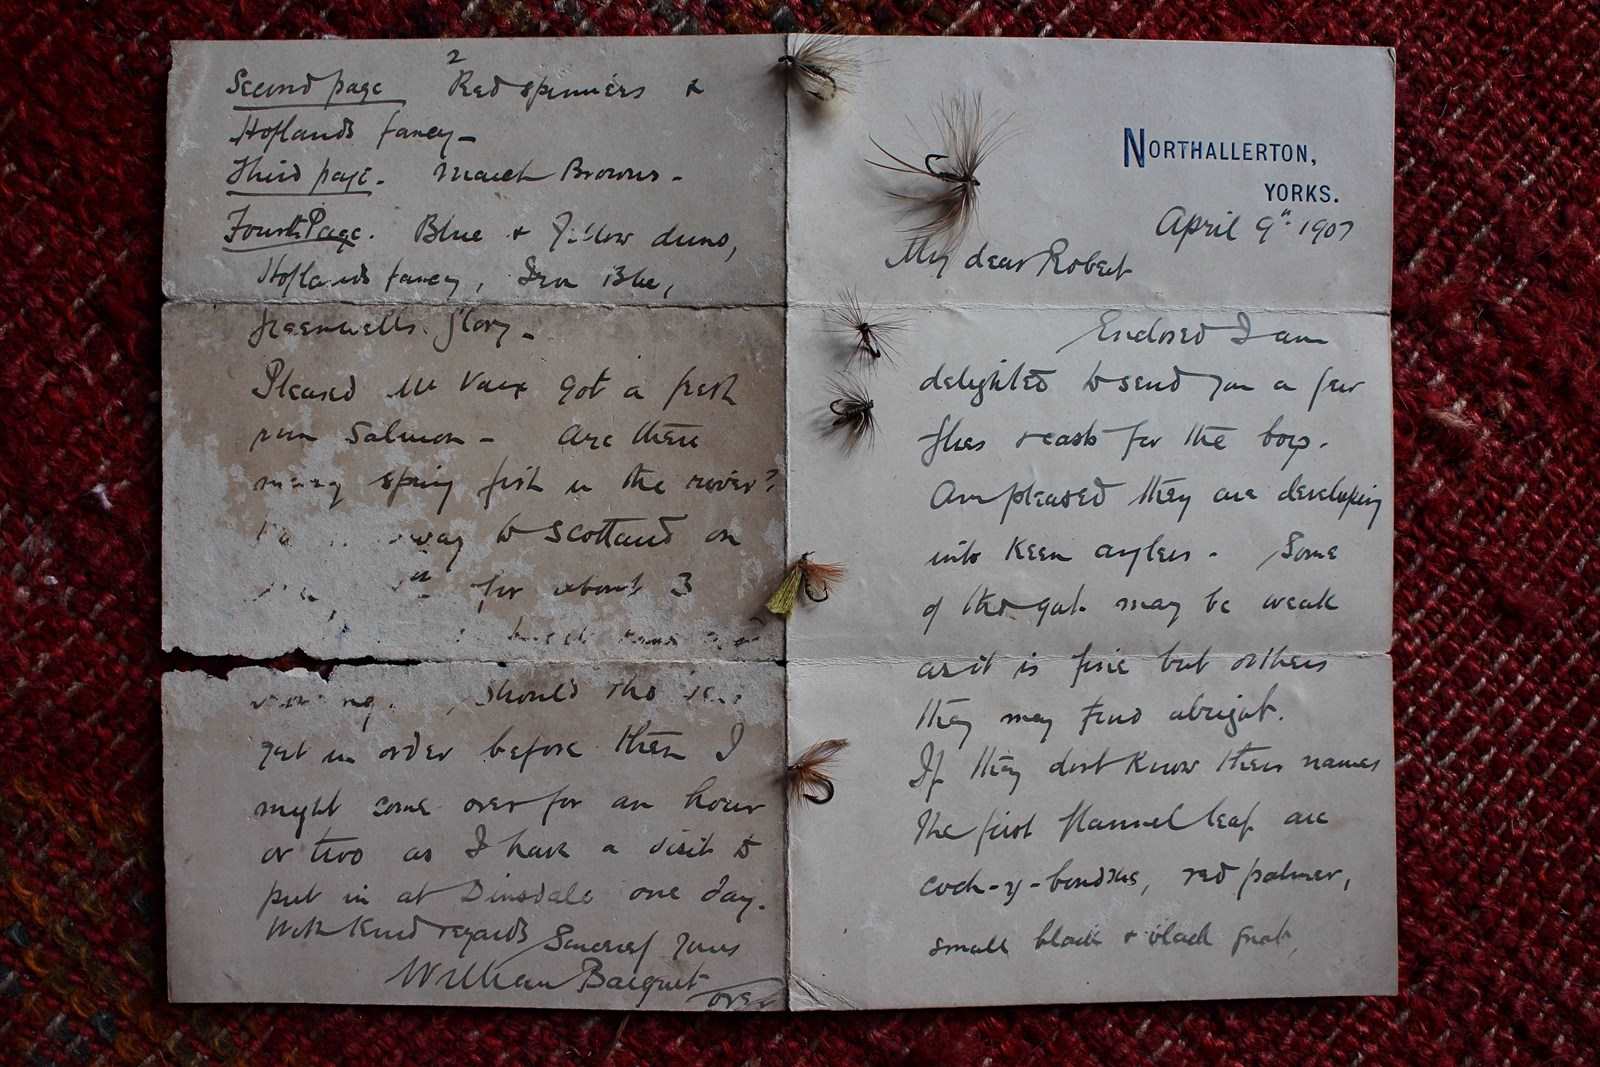 NORTHALLERTON,
YORKS.
April 9" 1907
My dear Robert
Enclosed I am
delighted to send you a few
flies & casts for the boys.
Am pleased they are developing
into keen anglers. Some
of the gut may be weak
as it is fine but others
they may find alright.
If they dont know their names
The first flannel leaf are
coch-y-bondhus, red palmer,
small black & black gnat,
Second page 2 Red spinners &
Hoflands fancy -
Third page. March Browns -
Fourth Page. Blue & Yellow duns,
Hoflands fancy, Iron Blue,
Greenwells glory -
Pleased Mr Vaux got a fresh
run Salmon - Are there
many spring fish in the river?
way to Scotland on
for about 3
should the
get in order before then I
might come over for an hour
or two as I have a visit to
put in at Dinsdale one day.
With kind regards
Sincerely yours
William
over